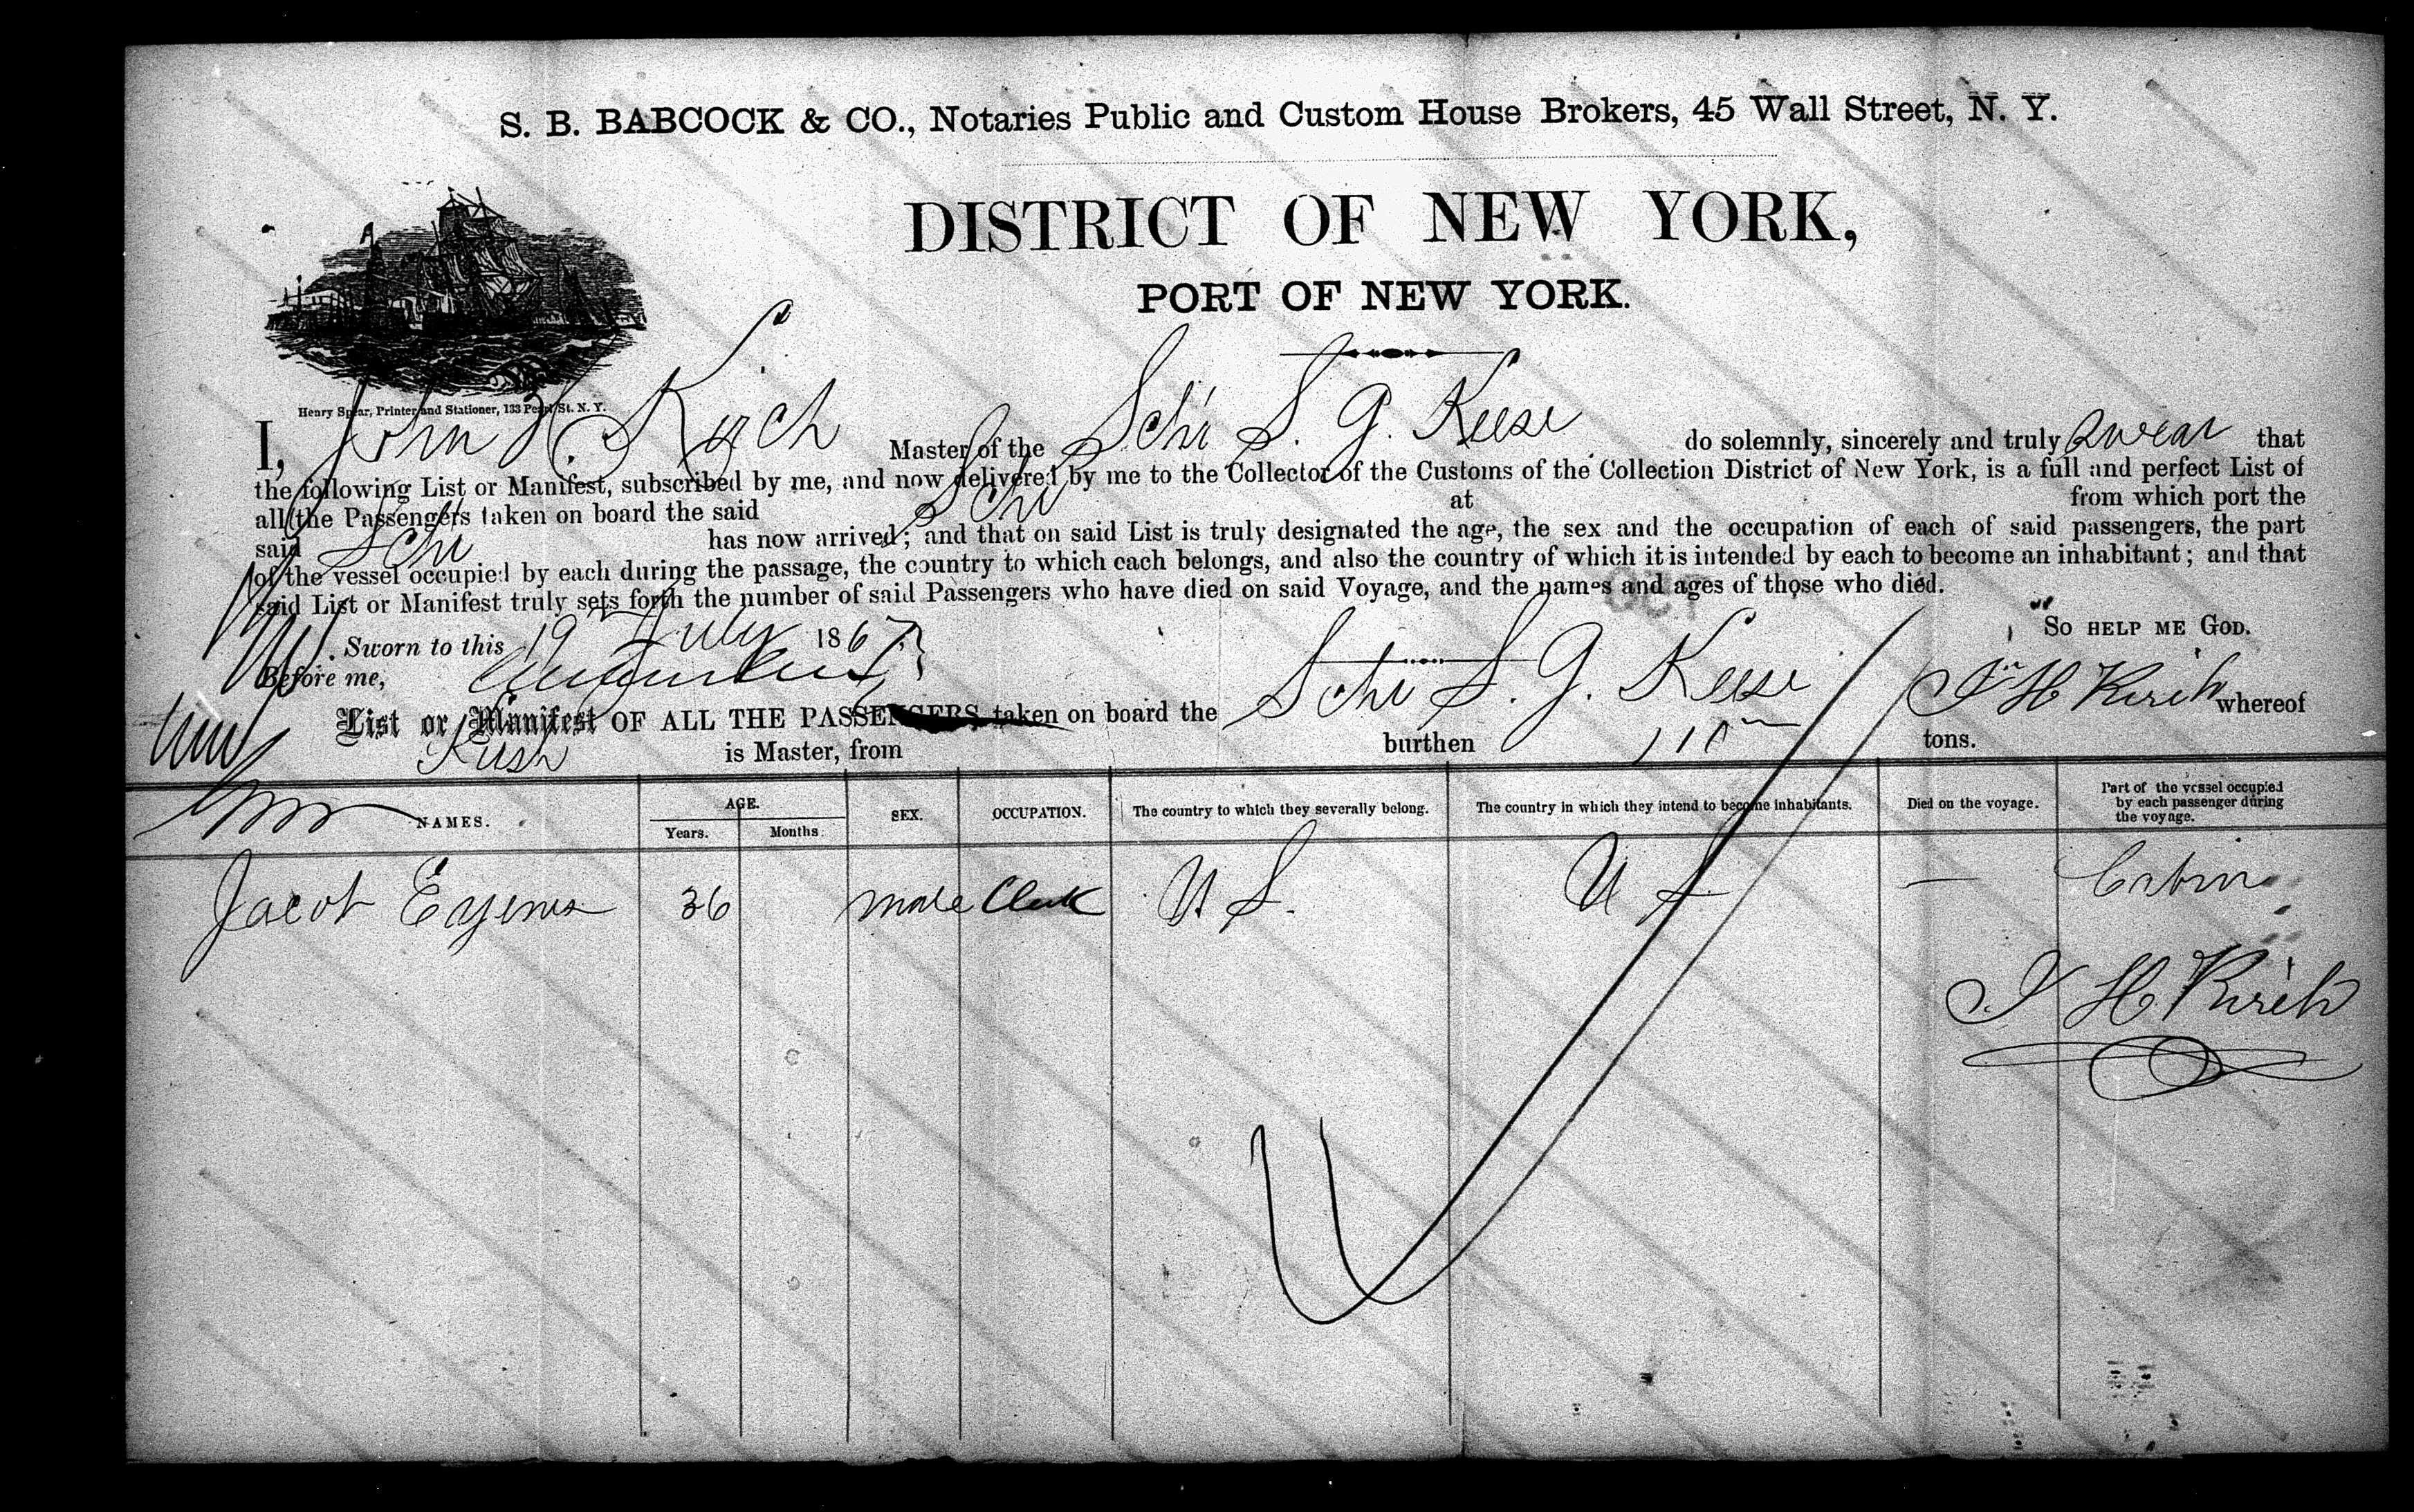 S. B. BABCOCK & CO., Notaries Public and Custom House Brokers, 45 Wall Street, N. Y.
DISTRICT OF NEW YORK,
PORT OF NEW YORK.
Henry Spear, Printer and Stationer, 133 Pearl St. N. Y.
I, John H. Master of the Schr S. G. Keese do solemnly, sincerely and truly swear that
the following List or Manifest, subscribed by me, and now delivered by me to the Collector of the Customs of the Collection District of New York, is a full and perfect List of
all the Passengers taken on board the said Schr at from which port the
said Schr has now arrived; and that on said List is truly designated the age, the sex and the occupation of each of said passengers, the part
of the vessel occupied by each during the passage, the country to which each belongs, and also the country of which it is intended by each to become an inhabitant; and that
said List or Manifest truly sets forth the number of said Passengers who have died on said Voyage, and the names and ages of those who died.
Sworn to this 19 July 1867 SO HELP ME GOD.
Before me, J H
List or Manifest OF ALL THE PASSENGERS taken on board the Schr S. G. Keese whereof
is Master, from burthen 110 tons.
NAMES. AGE. Years. Months. SEX. OCCUPATION. The country to which they severally belong. The country in which they intend to become inhabitants. Died on the voyage. Part of the vessel occupied by each passenger during the voyage.
Jacob 36 male Clerk U S. U S — Cabin
J H